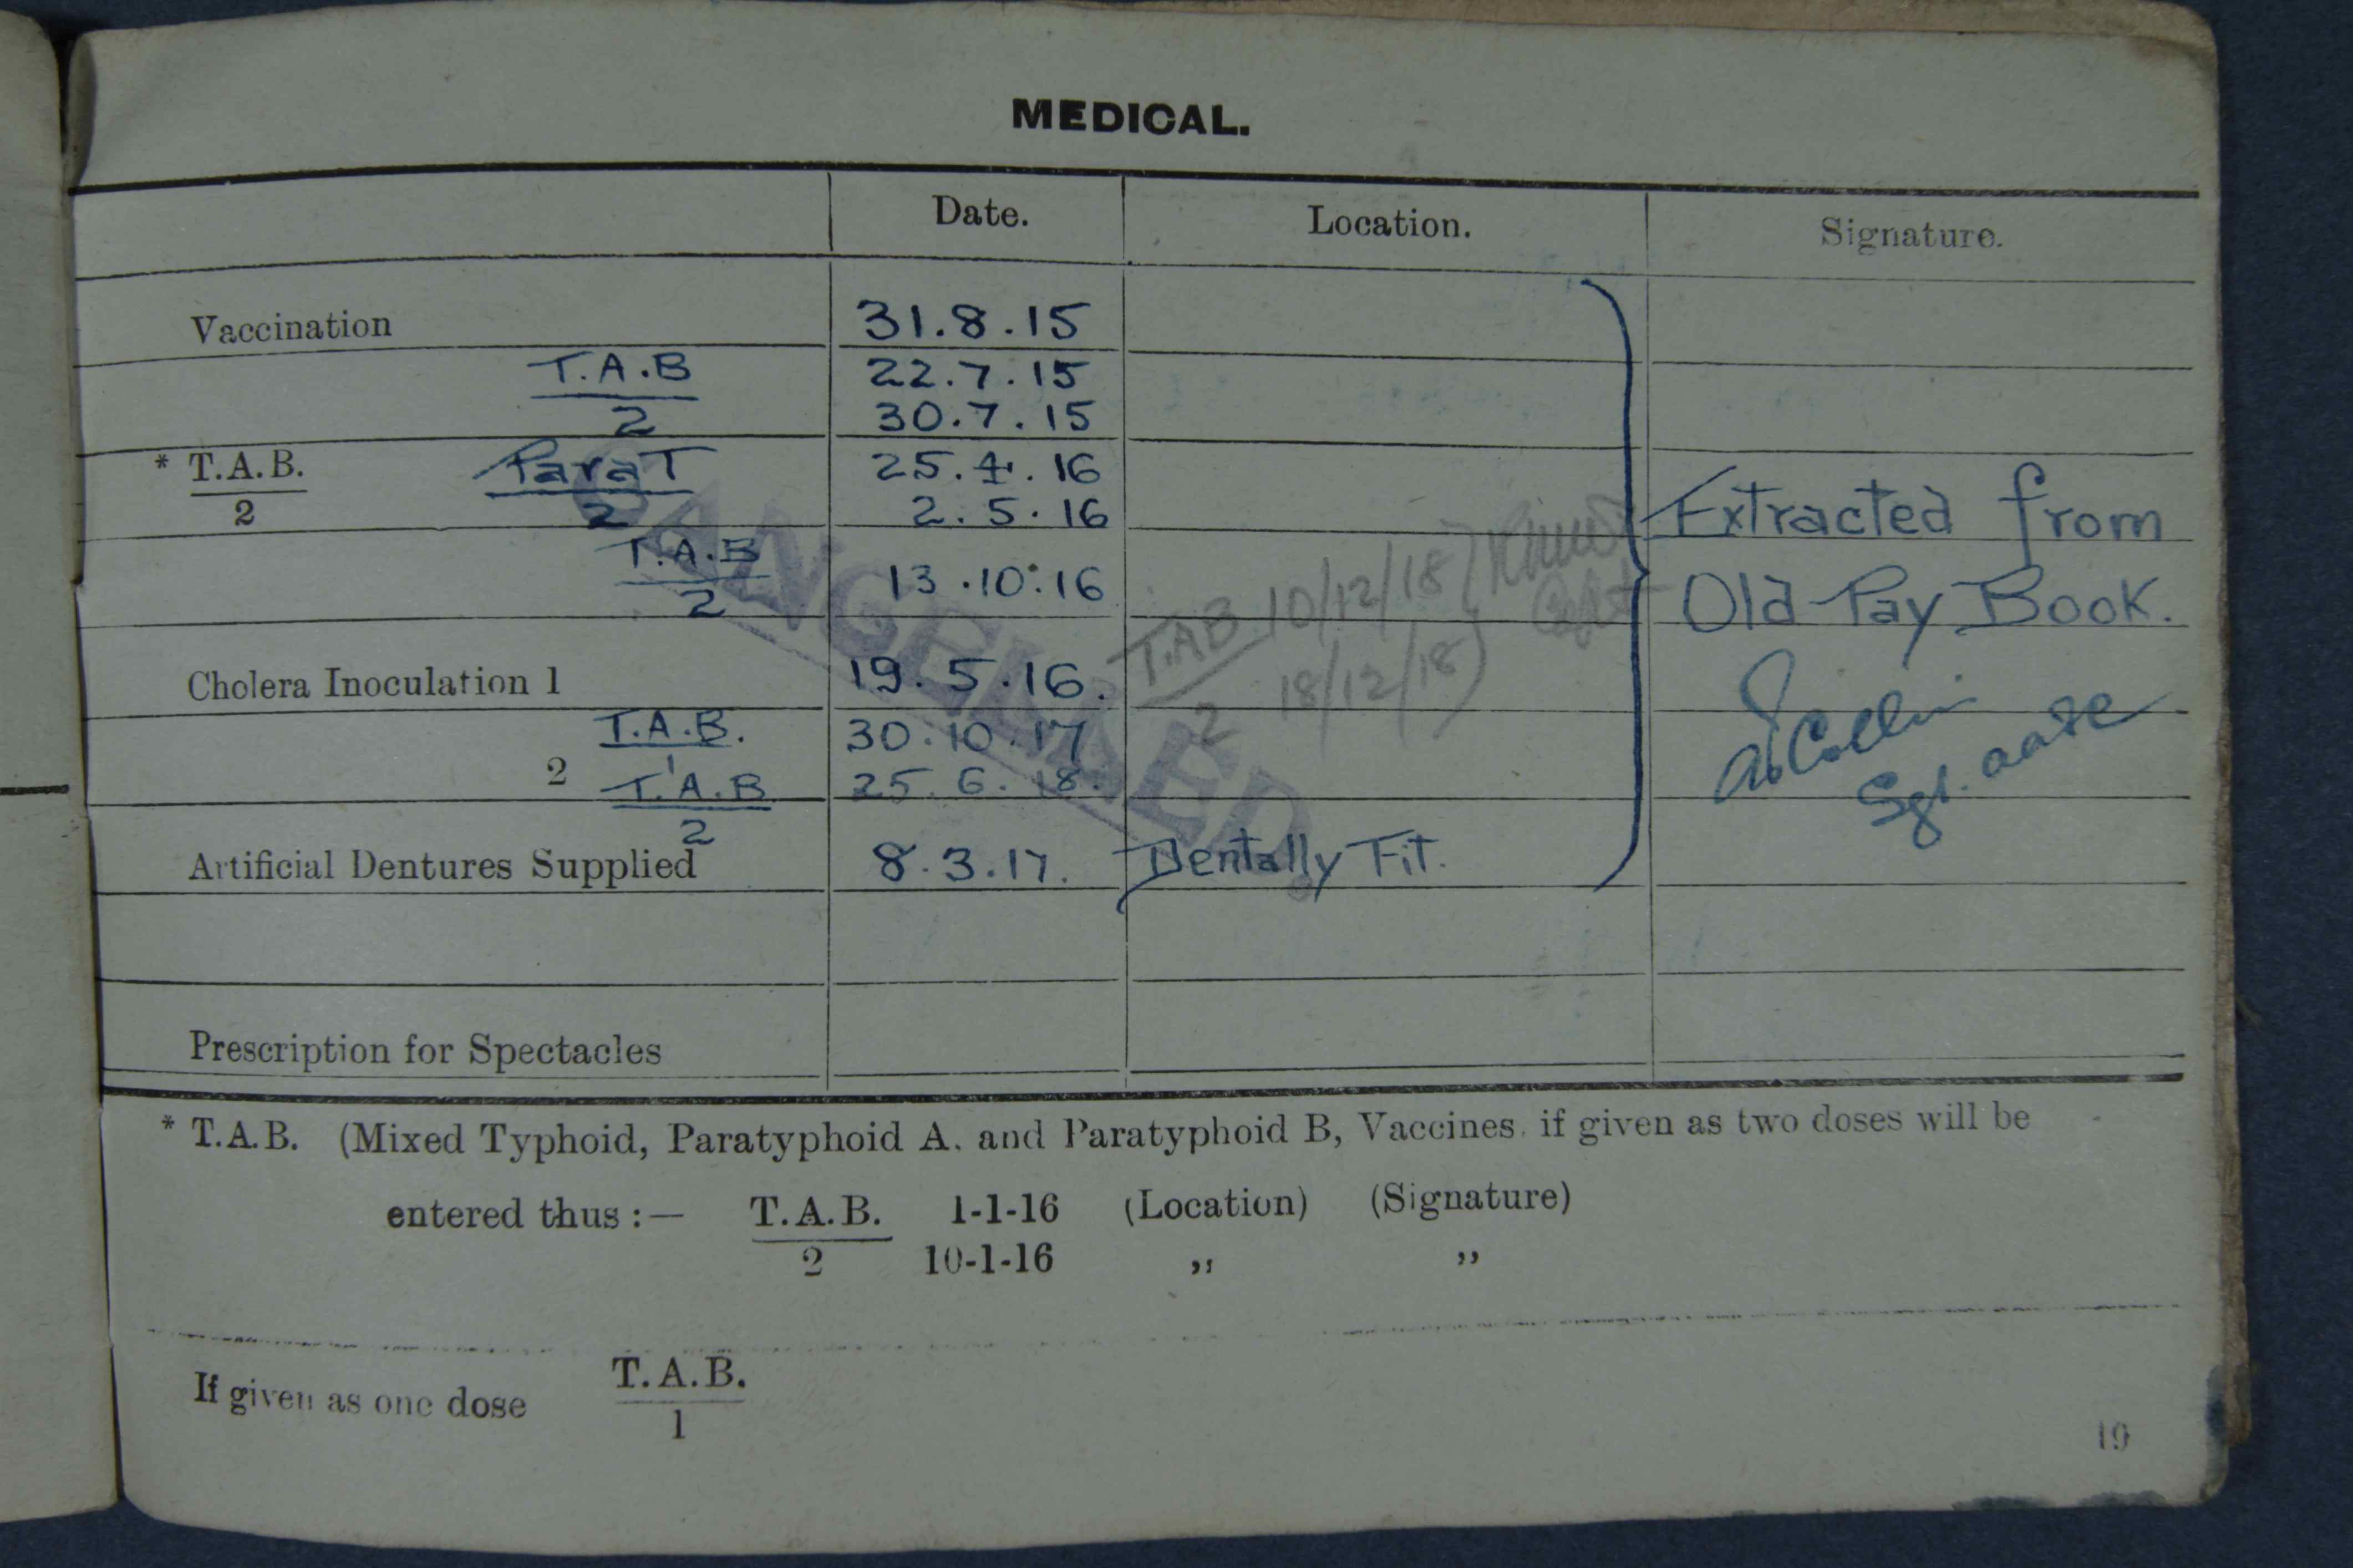 MEDICAL.
Date. Location. Signature.
Vaccination 31.8.15
T.A.B 22.7.15
2 30.7.15
* T.A.B. ParaT 25.4.16
2 2 2.5.16
Extracted from
T.A.B
2 13.10.16
T.A.B 10/12/18
2 18/12/18
Old Pay Book.
Cholera Inoculation 1 19.5.16.
T.A.B. 30.10.17
1
2 T.A.B 25.6.18.
2
Sgt.
Artificial Dentures Supplied 8.3.17. Dentally Fit.
CANCELLED
Prescription for Spectacles
* T.A.B. (Mixed Typhoid, Paratyphoid A. and Paratyphoid B, Vaccines, if given as two doses will be
entered thus :— T.A.B. 1-1-16 (Location) (Signature)
2 10-1-16 ,, ,,
If given as one dose T.A.B.
1
19